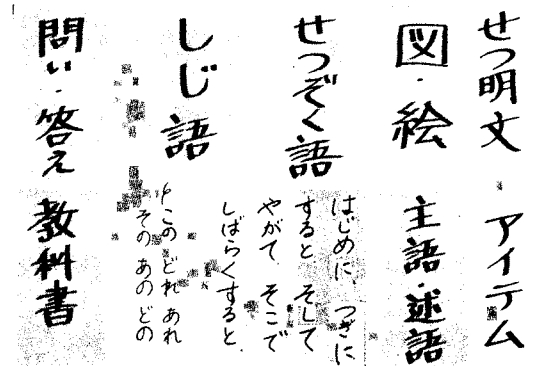 せつ明文 アイテム
図・絵 主語・述語
せつぞく語
はじめに、つぎに
すると そして
やがて、そこで
しばらくすると、
しじ語
この どれ あれ
その あの どの
問い・答え 教科書